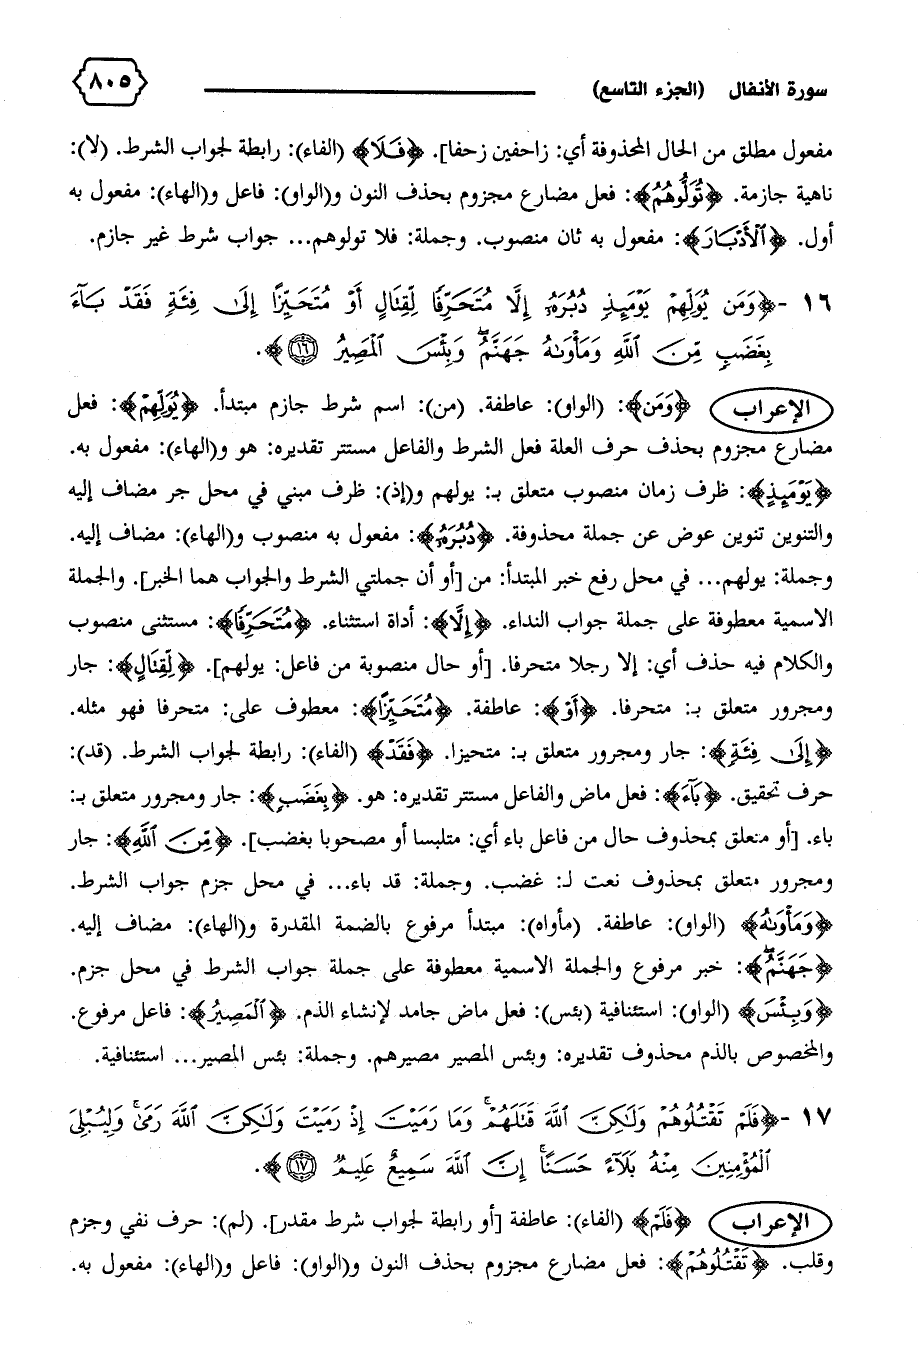 سورة الأنفال (الجزء التاسع) ٨٠٥
مفعول مطلق من الحال المحذوفة أي: زاحفين زحفا]. ﴿فَلَا﴾ (الفاء): رابطة لجواب الشرط. (لا):
ناهية جازمة. ﴿تُوَلُّوهُمُ﴾: فعل مضارع مجزوم بحذف النون و(الواو): فاعل و(الهاء): مفعول به
أول. ﴿الْأَدْبَارَ﴾: مفعول به ثان منصوب. وجملة: فلا تولوهم... جواب شرط غير جازم.
١٦ -﴿وَمَن يُوَلِّهِمْ يَوْمَئِذٍ دُبُرَهُۥٓ إِلَّا مُتَحَرِّفًا لِّقِتَالٍ أَوْ مُتَحَيِّزًا إِلَىٰ فِئَةٍ فَقَدْ بَآءَ
بِغَضَبٍ مِّنَ اللَّهِ وَمَأْوَىٰهُ جَهَنَّمُ ۖ وَبِئْسَ الْمَصِيرُ ﴿١٦﴾﴾.
الإعراب ﴿وَمَن﴾: (الواو): عاطفة. (من): اسم شرط جازم مبتدأ. ﴿يُوَلِّهِمْ﴾: فعل
مضارع مجزوم بحذف حرف العلة فعل الشرط والفاعل مستتر تقديره: هو و(الهاء): مفعول به.
﴿يَوْمَئِذٍ﴾: ظرف زمان منصوب متعلق بـ: يولهم و(إذ): ظرف مبني في محل جر مضاف إليه
والتنوين تنوين عوض عن جملة محذوفة. ﴿دُبُرَهُۥٓ﴾: مفعول به منصوب و(الهاء): مضاف إليه.
وجملة: يولهم... في محل رفع خبر المبتدأ: من [أو أن جملتي الشرط والجواب هما الخبر]. والجملة
الاسمية معطوفة على جملة جواب النداء. ﴿إِلَّا﴾: أداة استثناء. ﴿مُتَحَرِّفًا﴾: مستثنى منصوب
والكلام فيه حذف أي: إلا رجلا متحرفا. [أو حال منصوبة من فاعل: يولهم]. ﴿لِّقِتَالٍ﴾: جار
ومجرور متعلق بـ: متحرفا. ﴿أَوْ﴾: عاطفة. ﴿مُتَحَيِّزًا﴾: معطوف على: متحرفا فهو مثله.
﴿إِلَىٰ فِئَةٍ﴾: جار ومجرور متعلق بـ: متحيزا. ﴿فَقَدْ﴾ (الفاء): رابطة لجواب الشرط. (قد):
حرف تحقيق. ﴿بَآءَ﴾: فعل ماض والفاعل مستتر تقديره: هو. ﴿بِغَضَبٍ﴾: جار ومجرور متعلق بـ:
باء. [أو متعلق بمحذوف حال من فاعل باء أي: متلبسا أو مصحوبا بغضب]. ﴿مِّنَ اللَّهِ﴾: جار
ومجرور متعلق بمحذوف نعت لـ: غضب. وجملة: قد باء... في محل جزم جواب الشرط.
﴿وَمَأْوَىٰهُ﴾ (الواو): عاطفة. (مأواه): مبتدأ مرفوع بالضمة المقدرة و(الهاء): مضاف إليه.
﴿جَهَنَّمُ ۖ﴾: خبر مرفوع والجملة الاسمية معطوفة على جملة جواب الشرط في محل جزم.
﴿وَبِئْسَ﴾ (الواو): استئنافية (بئس): فعل ماض جامد لإنشاء الذم. ﴿الْمَصِيرُ﴾: فاعل مرفوع.
والمخصوص بالذم محذوف تقديره: وبئس المصير مصيرهم. وجملة: بئس المصير... استئنافية.
١٧ -﴿فَلَمْ تَقْتُلُوهُمْ وَلَٰكِنَّ اللَّهَ قَتَلَهُمْ ۚ وَمَا رَمَيْتَ إِذْ رَمَيْتَ وَلَٰكِنَّ اللَّهَ رَمَىٰ ۚ وَلِيُبْلِيَ
الْمُؤْمِنِينَ مِنْهُ بَلَآءً حَسَنًا ۚ إِنَّ اللَّهَ سَمِيعٌ عَلِيمٌ ﴿١٧﴾﴾.
الإعراب ﴿فَلَمْ﴾ (الفاء): عاطفة [أو رابطة لجواب شرط مقدر]. (لم): حرف نفي وجزم
وقلب. ﴿تَقْتُلُوهُمْ﴾: فعل مضارع مجزوم بحذف النون و(الواو): فاعل و(الهاء): مفعول به.